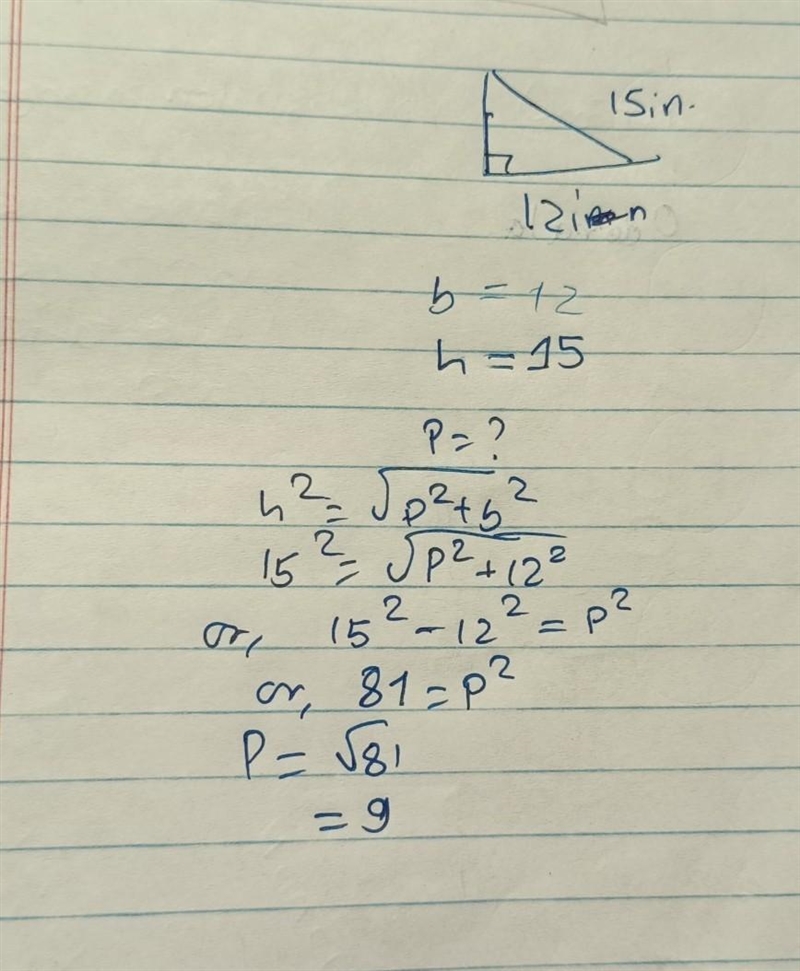 15in.
12in
b = 12
h = 15
P = ?
h² = √p²+b²
15² = √p²+12²
or, 15² - 12² = p²
or, 81 = p²
P = √81
= 9